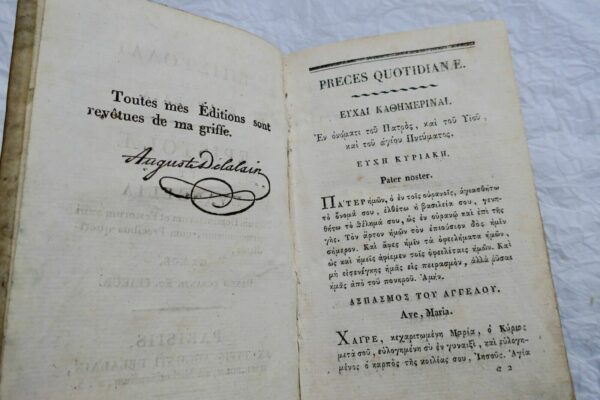 Toutes mes Éditions sont
revêtues de ma griffe.
Auguste Delalain
PRECES QUOTIDIANÆ.
ΕΥΧΑΙ ΚΑΘΗΜΕΡΙΝΑΙ.
Ἐν ὀνόματι τοῦ Πατρὸς, καὶ τοῦ Υἱοῦ,
καὶ τοῦ ἁγίου Πνεύματος.
ΕΥΧΗ ΚΥΡΙΑΚΗ.
Pater noster.
ΠΑΤΕΡ ἡμῶν, ὁ ἐν τοῖς οὐρανοῖς, ἁγιασθήτω
τὸ ὄνομά σου, ἐλθέτω ἡ βασιλεία σου, γενη-
θήτω τὸ θέλημά σου, ὡς ἐν οὐρανῷ καὶ ἐπὶ τῆς
γῆς. Τὸν ἄρτον ἡμῶν τὸν ἐπιούσιον δὸς ἡμῖν
σήμερον. Καὶ ἄφες ἡμῖν τὰ ὀφειλήματα ἡμῶν,
ὡς καὶ ἡμεῖς ἀφίεμεν τοῖς ὀφειλέταις ἡμῶν. Καὶ
μὴ εἰσενέγκῃς ἡμᾶς εἰς πειρασμὸν, ἀλλὰ ῥῦσαι
ἡμᾶς ἀπὸ τοῦ πονηροῦ. Ἀμήν.
ΑΣΠΑΣΜΟΣ ΤΟΥ ΑΓΓΕΛΟΥ.
Ave, Maria.
ΧΑΙΡΕ, κεχαριτωμένη Μαρία, ὁ Κύριος
μετὰ σοῦ, εὐλογημένη σὺ ἐν γυναιξὶ, καὶ εὐλογη-
μένος ὁ καρπὸς τῆς κοιλίας σου, Ἰησοῦς. Ἁγία
2